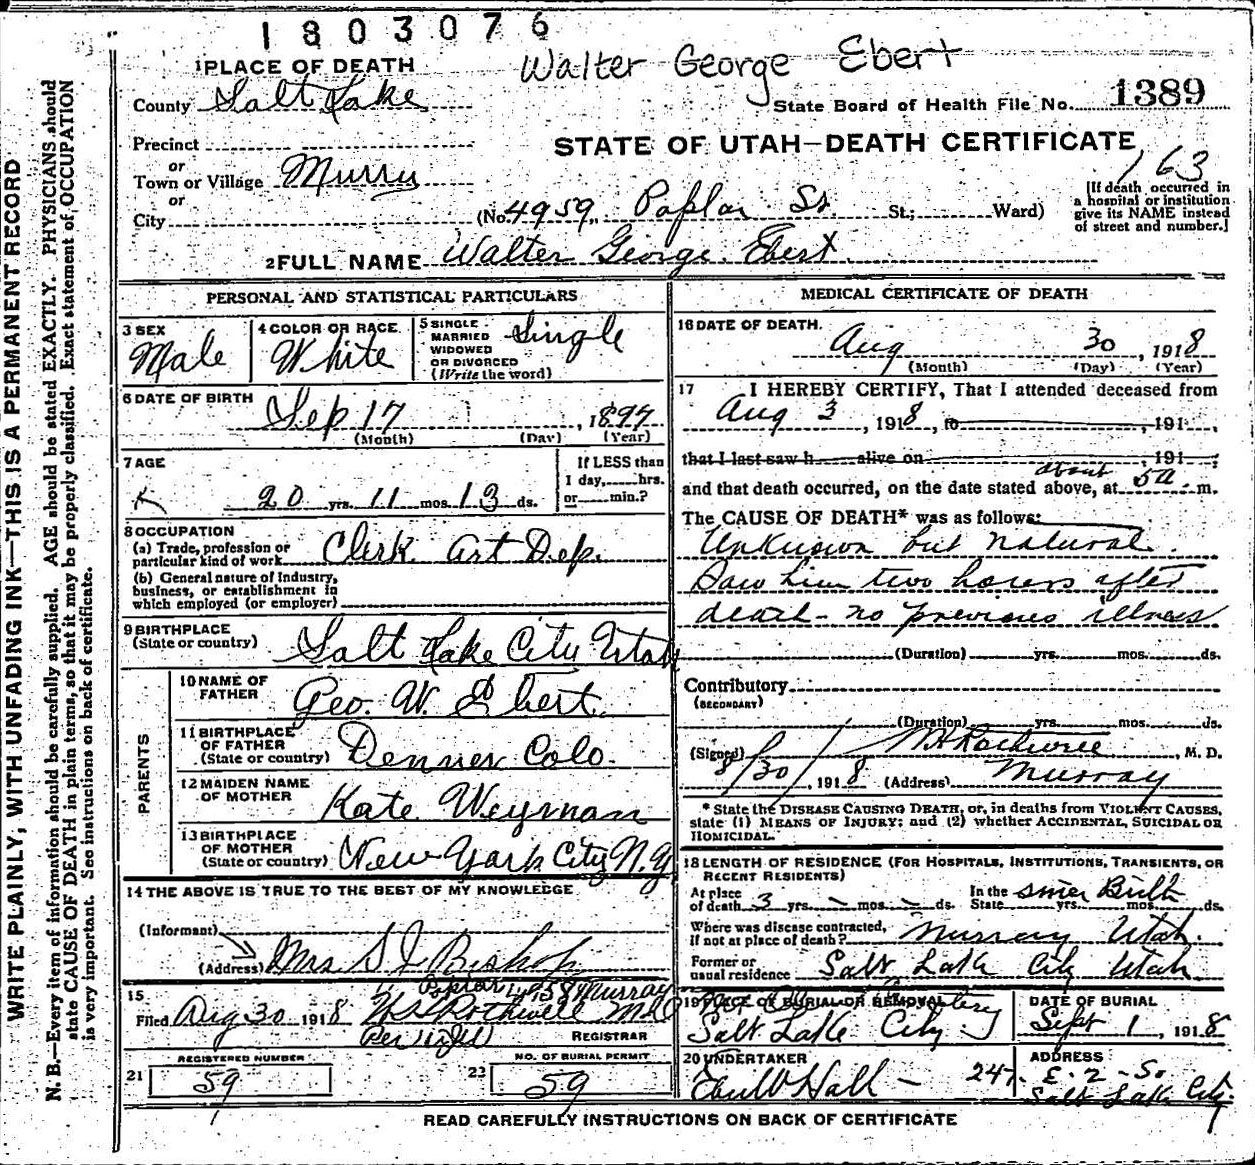 1803076
Walter George Ebert
1 PLACE OF DEATH
County Salt Lake
State Board of Health File No. 1389
Precinct
STATE OF UTAH—DEATH CERTIFICATE
163
or
Town or Village Murry
or
City
(No. 4959, Poplar St. St.; Ward)
[If death occurred in
a hospital or institution
give its NAME instead
of street and number.]
2 FULL NAME Walter George Ebert
PERSONAL AND STATISTICAL PARTICULARS
3 SEX
Male
4 COLOR OR RACE
White
5 SINGLE
MARRIED
WIDOWED
OR DIVORCED
(Write the word)
Single
6 DATE OF BIRTH
Sep 17, 1897
(Month) (Day) (Year)
7 AGE
20 yrs. 11 mos. 13 ds.
If LESS than
1 day, hrs.
or min.?
8 OCCUPATION
(a) Trade, profession or
particular kind of work Clerk Art Dep.
(b) General nature of industry,
business, or establishment in
which employed (or employer)
9 BIRTHPLACE
(State or country) Salt Lake City Utah
PARENTS
10 NAME OF
FATHER Geo. W. Ebert
11 BIRTHPLACE
OF FATHER
(State or country) Denver Colo.
12 MAIDEN NAME
OF MOTHER Kate Weyman
13 BIRTHPLACE
OF MOTHER
(State or country) New York City N.Y
14 THE ABOVE IS TRUE TO THE BEST OF MY KNOWLEDGE
(Informant)
(Address) Mrs S J Bishop
Poplar Murray
15
Filed Aug 30 1918 Rothwell MD
REGISTRAR
REGISTERED NUMBER
21 59
NO. OF BURIAL PERMIT
22 59
MEDICAL CERTIFICATE OF DEATH
16 DATE OF DEATH.
Aug 30, 1918
(Month) (Day) (Year)
17 I HEREBY CERTIFY, That I attended deceased from
Aug 3, 1918, to 191 ,
that I last saw h alive on 191 ;
about
and that death occurred, on the date stated above, at 5a m.
The CAUSE OF DEATH* was as follows:
Unknown but natural.
Saw him two hours after
death - no previous illness
(Duration) yrs. mos. ds.
Contributory
(SECONDARY)
(Duration) yrs. mos. ds.
(Signed) M. D.
8/30/, 1918 (Address) Murray
* State the DISEASE CAUSING DEATH, or, in deaths from VIOLENT CAUSES,
state (1) MEANS OF INJURY; and (2) whether ACCIDENTAL, SUICIDAL OR
HOMICIDAL.
18 LENGTH OF RESIDENCE (FOR HOSPITALS, INSTITUTIONS, TRANSIENTS, OR
RECENT RESIDENTS)
At place
of death 3 yrs. - mos. - ds.
In the
State since Birth yrs. mos. ds.
Where was disease contracted,
if not at place of death? Murray Utah.
Former or
usual residence Salt Lake City Utah
19 PLACE OF BURIAL OR REMOVAL
Cemetery
Salt Lake City
DATE OF BURIAL
Sept 1, 1918
20 UNDERTAKER
Hall -
ADDRESS
247. E. 2 - So
Salt Lake City.
READ CAREFULLY INSTRUCTIONS ON BACK OF CERTIFICATE
WRITE PLAINLY, WITH UNFADING INK—THIS IS A PERMANENT RECORD
N. B.—Every item of information should be carefully supplied. AGE should be stated EXACTLY. PHYSICIANS should
state CAUSE OF DEATH in plain terms, so that it may be properly classified. Exact statement of OCCUPATION
is very important. See instructions on back of certificate.